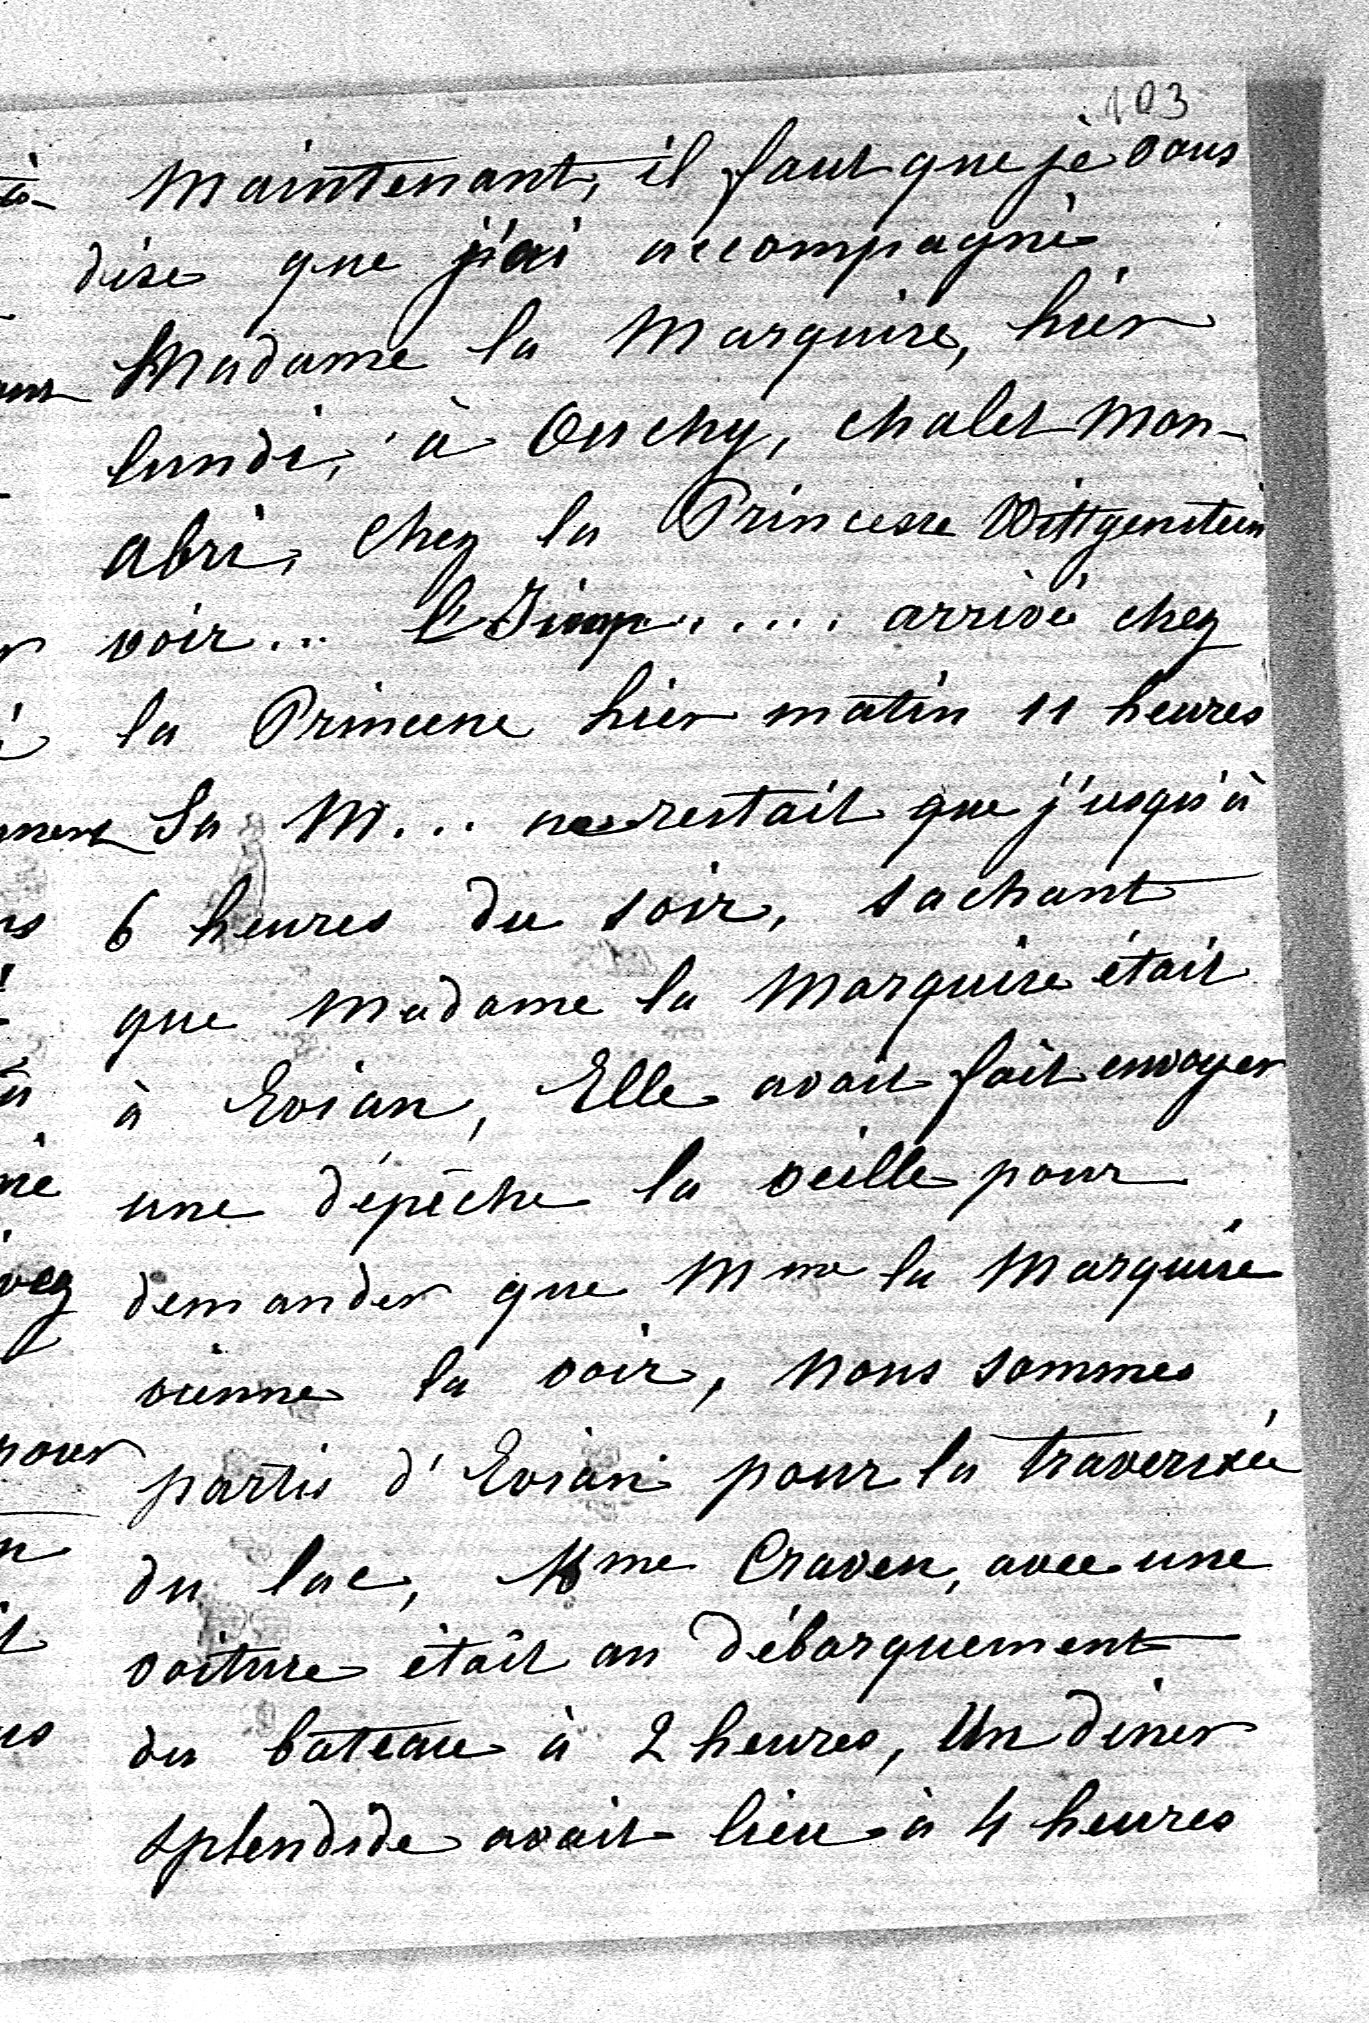 103
Maintenant, il faut que je vous
dise que j'ai accompagné
Madame la Marquise, hier
lundi, à Ouchy, chalet Mon-
abri, chez la Princesse Wittgenstein
voir... l'Imp..... arrivée chez
la Princesse hier matin 11 heures
Sa M... ne restait que j'usqu'à
6 heures du soir, sachant
que Madame la Marquise était
à Evian, Elle avait fait envoyer
une dépêche la veille pour
demander que Mme la Marquise
vienne la voir, nous sommes
partis d'Evian pour la traversée
du lac, Mme Craven, avec une
voiture était au débarquement
du bateau à 2 heures, Un diner
splendide avait lieu à 4 heures